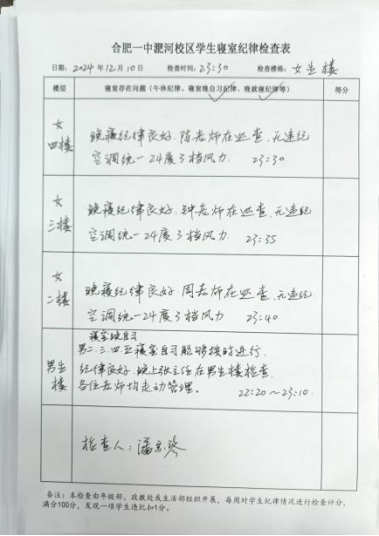 合肥一中淝河校区学生寝室纪律检查表
日期：2024年12月10日 检查时间：23:30 检查楼栋：女生楼
楼层 寝室存在问题（午休纪律、寝室晚自习纪律、晚就寝纪律等） 得分
女四楼 晚寝纪律良好.陈老师在巡查.无违纪
空调统一24度3档风力. 23:30
女三楼 晚寝纪律良好.钟老师在巡查.无违纪
空调统一24度3档风力. 23:35
女二楼 晚寝纪律良好.周老师在巡查.无违纪.
空调统一24度3档风力. 23:40
寝室晚自习
男生楼 第二.三.四五寝室自习能够按时进行.
纪律良好.晚上张主任在男生楼检查.
各位老师均走动管理。 22:20~23:10.
检查人：潘
备注：本检查由年级部、政教处或生活部组织开展，每周对学生纪律情况进行检查评分，
满分100分，发现一项学生违纪扣1分。